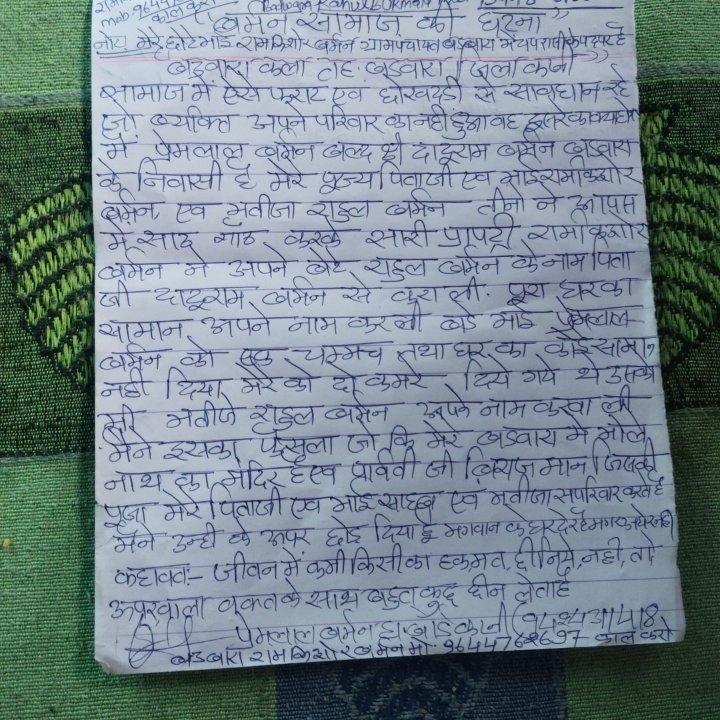 बर्मन समाज की घटना
नोट मेरे छोटे भाई रामकिशोर बर्मन ग्राम पंचायत बडवारा में
बडवारा कला तह. बडवारा जिला कटनी
सामाज में ऐसे फ्राट एवं धोखेधड़ी से सावधान रहे
जो व्यक्ति अपने परिवार का नही हुआ वह दूसरे का क्या होगा
में प्रेमलाल बर्मन बल्द श्री दादूराम बर्मन बडवारा
के निवासी है मेरे पूज्य पिताजी एवं भाई रामकिशोर
बर्मन एवं भतीजा राहुल बर्मन तीनो ने आपस
में साठ गाठ करके सारी प्रापर्टी रामकिशोर
बर्मन ने अपने बेटे राहुल बर्मन के नाम पिता
जी दादूराम बर्मन से करा ली. पूरा घर का
सामान अपने नाम कर ली बडे भाई प्रेमलाल
बर्मन को एक चम्मच तथा घर का कोई सामान
नही दिया मेरे को दो कमरे दिये गये थे उसको
भी भतीजे राहुल बर्मन अपने नाम करवा ली
मैने इसका फैसुला जो कि मेरे बडवारा में भोले
नाथ का मंदिर है एवं पार्वती जी विराजमान जिसकी
पूजा मेरे पिताजी एवं भाई साहब एवं भतीजा सपरिवार करते है
मैने उन्ही के ऊपर छोड़ दिया है भगवान के घर देर है मगर अंधेर नही
कहावतः- जीवन में कभी किसी का हक मत छीनिये, नही, तो
ऊपर वाला वक्त के साथ बहुत कुछ छीन लेता है
प्रेमलाल बर्मन
बडवारा रामकिशोर बर्मन मो. काल करो